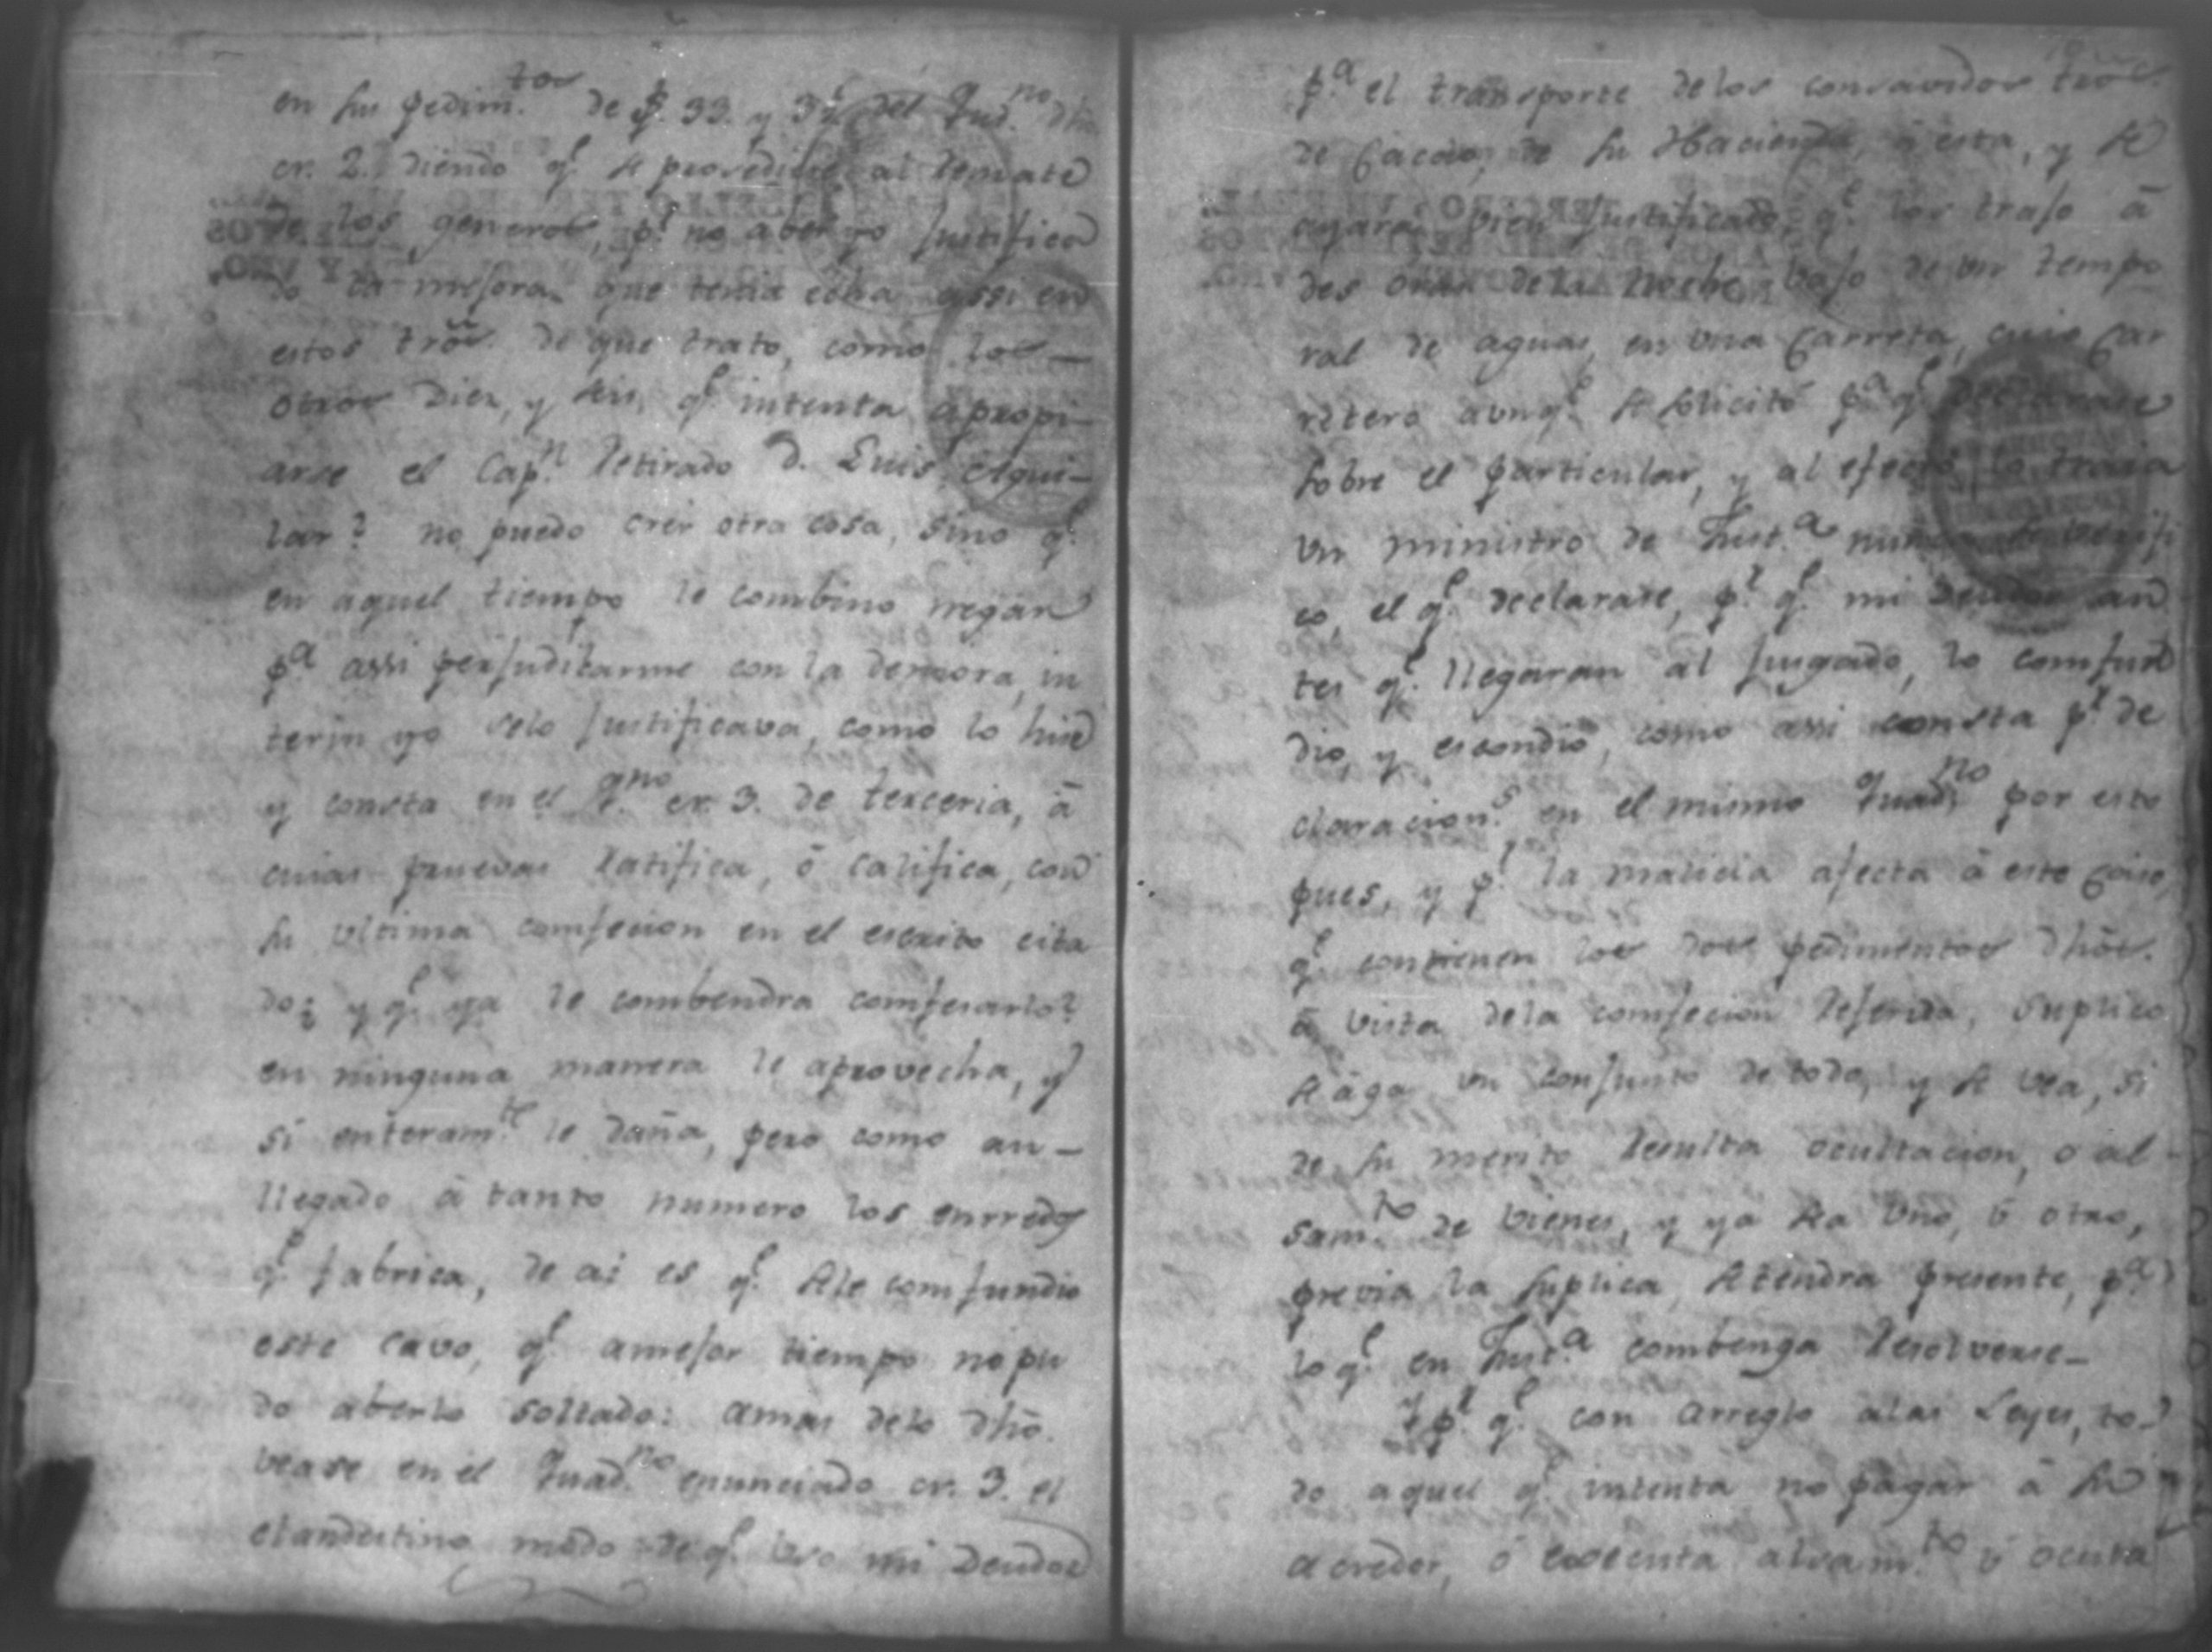 en su pedim.tos de f. 33. y 3 del Quad.no dho
cr. 2. diendo q.e se provediese al Remate
de los generos, p.r no aber yo justifica
do la mejora que tenia echa assi en
estos tros. de que trato, como los
otros Diez, y seis, q.e intenta apropi-
arse el Cap.n Retirado D. Luis Agui-
lar? no puedo crer otra cosa, sino q.e
en aquel tiempo le combino negar
p.a assi perjudicarme con la demora, in
terin yo selo justificava, como lo hise
y consta en el q.no cr. 3. de terceria, â
cuias pruevas Ratifica, ô califica, con
su ultima comfecion en el escrito cita
do; y q.e ya le combendra comfesarlo?
en ninguna manera le aprovecha, y
si enteram.te le daña, pero como an-
llegado â tanto numero los enrredos
q.e fabrica, de ai es q.e sele comfundio
este cavo, q.e amejor tiempo no pu
do aberlo soltado: amas delo dho.
vease en el Quad.no enunciado cr. 3. el
clandestino modo de q.e uso mi Deudor
p.a el transporte de los consavidos tros.
de Cacao, de su Hacienda, â esta, y se
ayara bien justificado, q.e los trajo â
des oras de la noche, vajo de un tempo
ral de aguas, en una Carreta, cuio Car
retero aunq.e se solicitó p.a q.e declarase
sobre el particular, y al efecto lo traia
un ministro de Just.a nunca se verifi
co, el q.e declarase, p.r q.e mi Deudor an
tes q.e llegaran al jusgado, lo comfun
dio, y escondio, como assi consta p.r de
claracion.s en el mismo Quad.no por esto
pues, y p.r la malicia afecta â este caso,
q.e contienen los dos pedimentos dhos.
â vista dela comfecion Referida, suplico
se aga un conjunto de todo, y se vea, si
de su merito Resulta ocultacion, o al-
sam.to de vienes, y ya sea uno, û otro,
previa la suplica se tendra presente, p.a
lo q.e en Just.a combenga Resolverse-
Y p.r q.e con arreglo alas Leyes, to-
do aquel q.e intenta no pagar â su
acredor, ô executa alsam.to û oculta